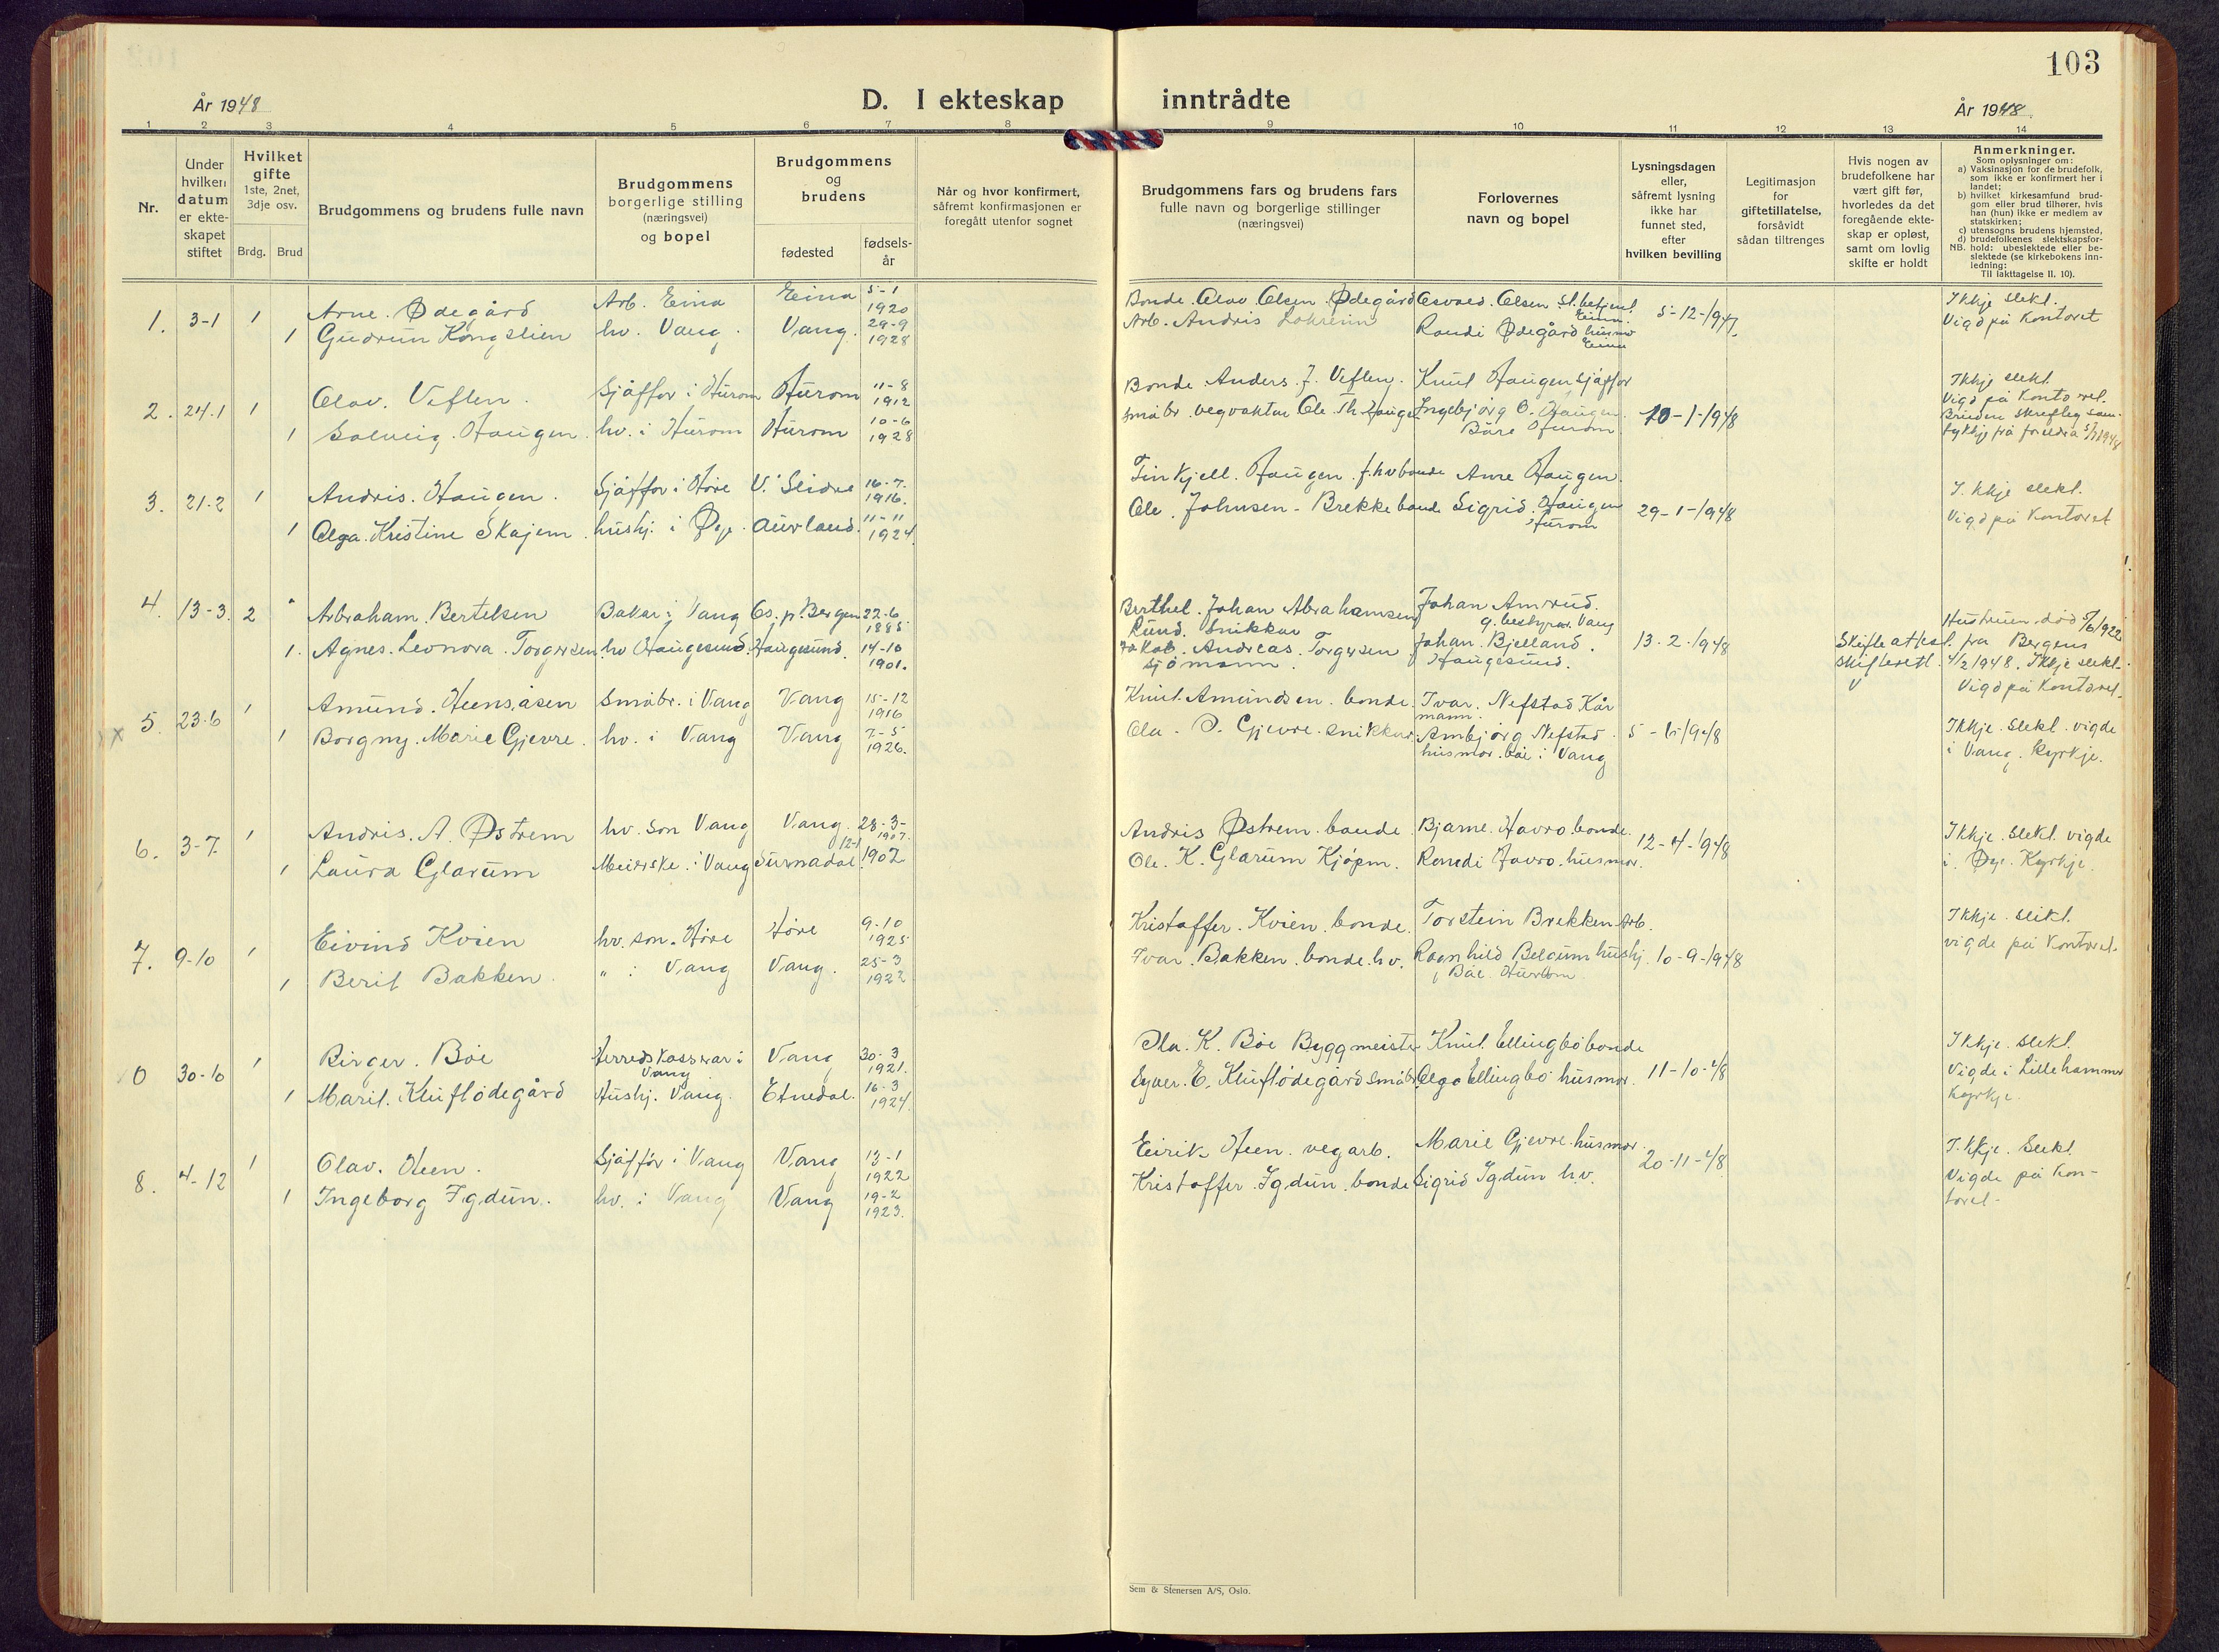 103
År 1948
D. I ekteskap inntrådte
År 1948.
1 2 3 4 5 6 7 8 9 10 11 12 13 14
Nr.
Under
hvilken
datum
er ekte-
skapet
stiftet
Hvilket
gifte
1ste, 2net,
3dje osv.
Brdg. Brud
Brudgommens og brudens fulle navn
Brudgommens
borgerlige stilling
(næringsvei)
og bopel
Brudgommens
og
brudens
fødested
fødsels-
år
Når og hvor konfirmert,
såfremt konfirmasjonen er
foregått utenfor sognet
Brudgommens fars og brudens fars
fulle navn og borgerlige stillinger
(næringsvei)
Forlovernes
navn og bopel
Lysningsdagen
eller,
såfremt lysning
ikke har
funnet sted,
efter
hvilken bevilling
Legitimasjon
for
giftetillatelse,
forsåvidt
sådan tiltrenges
Hvis nogen av
brudefolkene har
vært gift før,
hvorledes da det
foregående ekte-
skap er opløst,
samt om lovlig
skifte er holdt
Anmerkninger.
Som oplysninger om:
a) Vaksinasjon for de brudefolk,
som ikke er konfirmert her i
landet;
b) hvilket kirkesamfund brud-
gom eller brud tilhører, hvis
han (hun) ikke er medlem av
statskirken;
c) utensogns brudens hjemsted,
d) brudefolkenes slektskapsfor-
NB. hold: ubeslektede eller be-
slektede (se kirkebokens inn-
ledning:
Til iakttagelse II. 10).
1. 3-1 1 Arne. Ødegård Arb. Eina Eina 5-1 1920
1 Gudrun Kongslien hv. Vang. Vang. 29-9 1928
Bonde. Olav Olsen. Ødegård Osvald. Olsen st.betjent Eina.
Arb. Andris Randi Ødegård husmo Eina
5-12-1947.
Ikkje slekt.
Vigd på Kontoret
2. 24.1 1 Olav. Veflen. Sjåffør i Hurom Hurom 11-8 1912
1 Solveig. Haugen. hv. i Hurom Hurom 10-6 1928
Bonde Anders. J. Veflen. Knut Haugen sjåffør
småbr. vegvaktar Ole. Th. Hauge Ingebjørg O. Haugen.
Hurom
10-1-1948
Ikkje slekt.
Vigd på Kontoret.
Bruden skrefleg sam-
tykkje frå foreldra 5/1 1948
3. 21.2 1 Andris. Haugen. Sjåffør i Høre V. Slidre 16-7. 1916.
1 Olga. Kristine Skajem. hushj. i Øye. Aurland. 11-11 1924.
Kjell. Haugen. f.hv bonde Anne Haugen.
Ole. Johnsen - Brekke bonde Sigrid. Haugen
Hurom
29-1-1948
I. kkje slekt.
Vigd på Kontoret
4. 13-3. 2 Abraham. Bertelsen Bakar i Vang Os. p. Bergen 22-6 1885
1. Agnes. Leonora. Torgersen. hv Haugesund. Haugesund. 14-10 1901.
Berthel. Johan Abrahamsen Johan Amrud.
Lund. Snikkar g. bestyrar Vang
Jakob. Andreas. Torgersen Johan. Bjelland.
sjømann. Haugesund.
13-2-1948
Hustruen død 5/6 1922
Skifteattest. fra Bergens
skifterett. 4/2 1948. Ikkje slekt.
Vigd på Kontoret.
x 5. 23.6 1 Amund. Heensåsen Småbr. i Vang Vang 15-12 1916
1 Borgny. Marie Gjevre. hv. i Vang Vang 7-5 1926.
Knut. Amundsen. bonde. Ivar. Nefstad Kår
mann.
Ola. O. Gjevre. snikkar. Ambjørg Nefstad.
husmor. båe i Vang
Ikkje. slekt. vigde
i Vang. kyrkje.
6. 3-7. 1 Andris. A. Østrem hv. son Vang Vang. 28-3- 1907.
1 Laura Glarum Meierske. i Vang Surnadal 12-1 1902
Andris Østrem. bonde. Bjarne. Havro. bonde.
Ole. K. Glarum Kjøpm. Randi Havro. husmor.
12-4-1948
Ikkje. slekt. vigde
i. Øye. Kyrkje.
7. 9-10 1 Eivind Kvien hv. son. Høre Høre 9-10 1925
1 Berit Bakken. " i Vang Vang. 25-3 1922
Kristoffer. Kvien. bonde. Torstein Brekken Arb.
Ivar. Bakken. bonde. hv. Ragnhild Belgum hushj.
Båe. Hurom
10-9-1948
Ikkje. slekt.
vigde på Kontoret.
0 30-10 1 Birger. Bøe Herredskasserar i Vang Vang 30-3 1921.
1 Marit. Kluftødegård Hushj. Vang. Etnedal. 16-3 1924.
Ola. K. Bøe Byggmeister Knut. Ellingbø bonde
E. Kluftødegård småbr. Olga Ellingbø husmor.
11-10-48
Ikkje. slekt.
Vigde i Lillehammer
Kyrkje.
8. 4-12 1 Olav. Heen. Sjåffør i Vang Vang 13-1 1922
1 Ingeborg Igdun. hv. i Vang Vang 19-2 1923.
Eirik Heen. vegarb. Marie Gjevre. husmor.
Kristoffer. Igdun. bonde Sigrid Igdun h.v.
20-11-48
I.kkje. Slekt.
Vigde på Kon-
toret-
Sem & Stenersen A/S, Oslo.